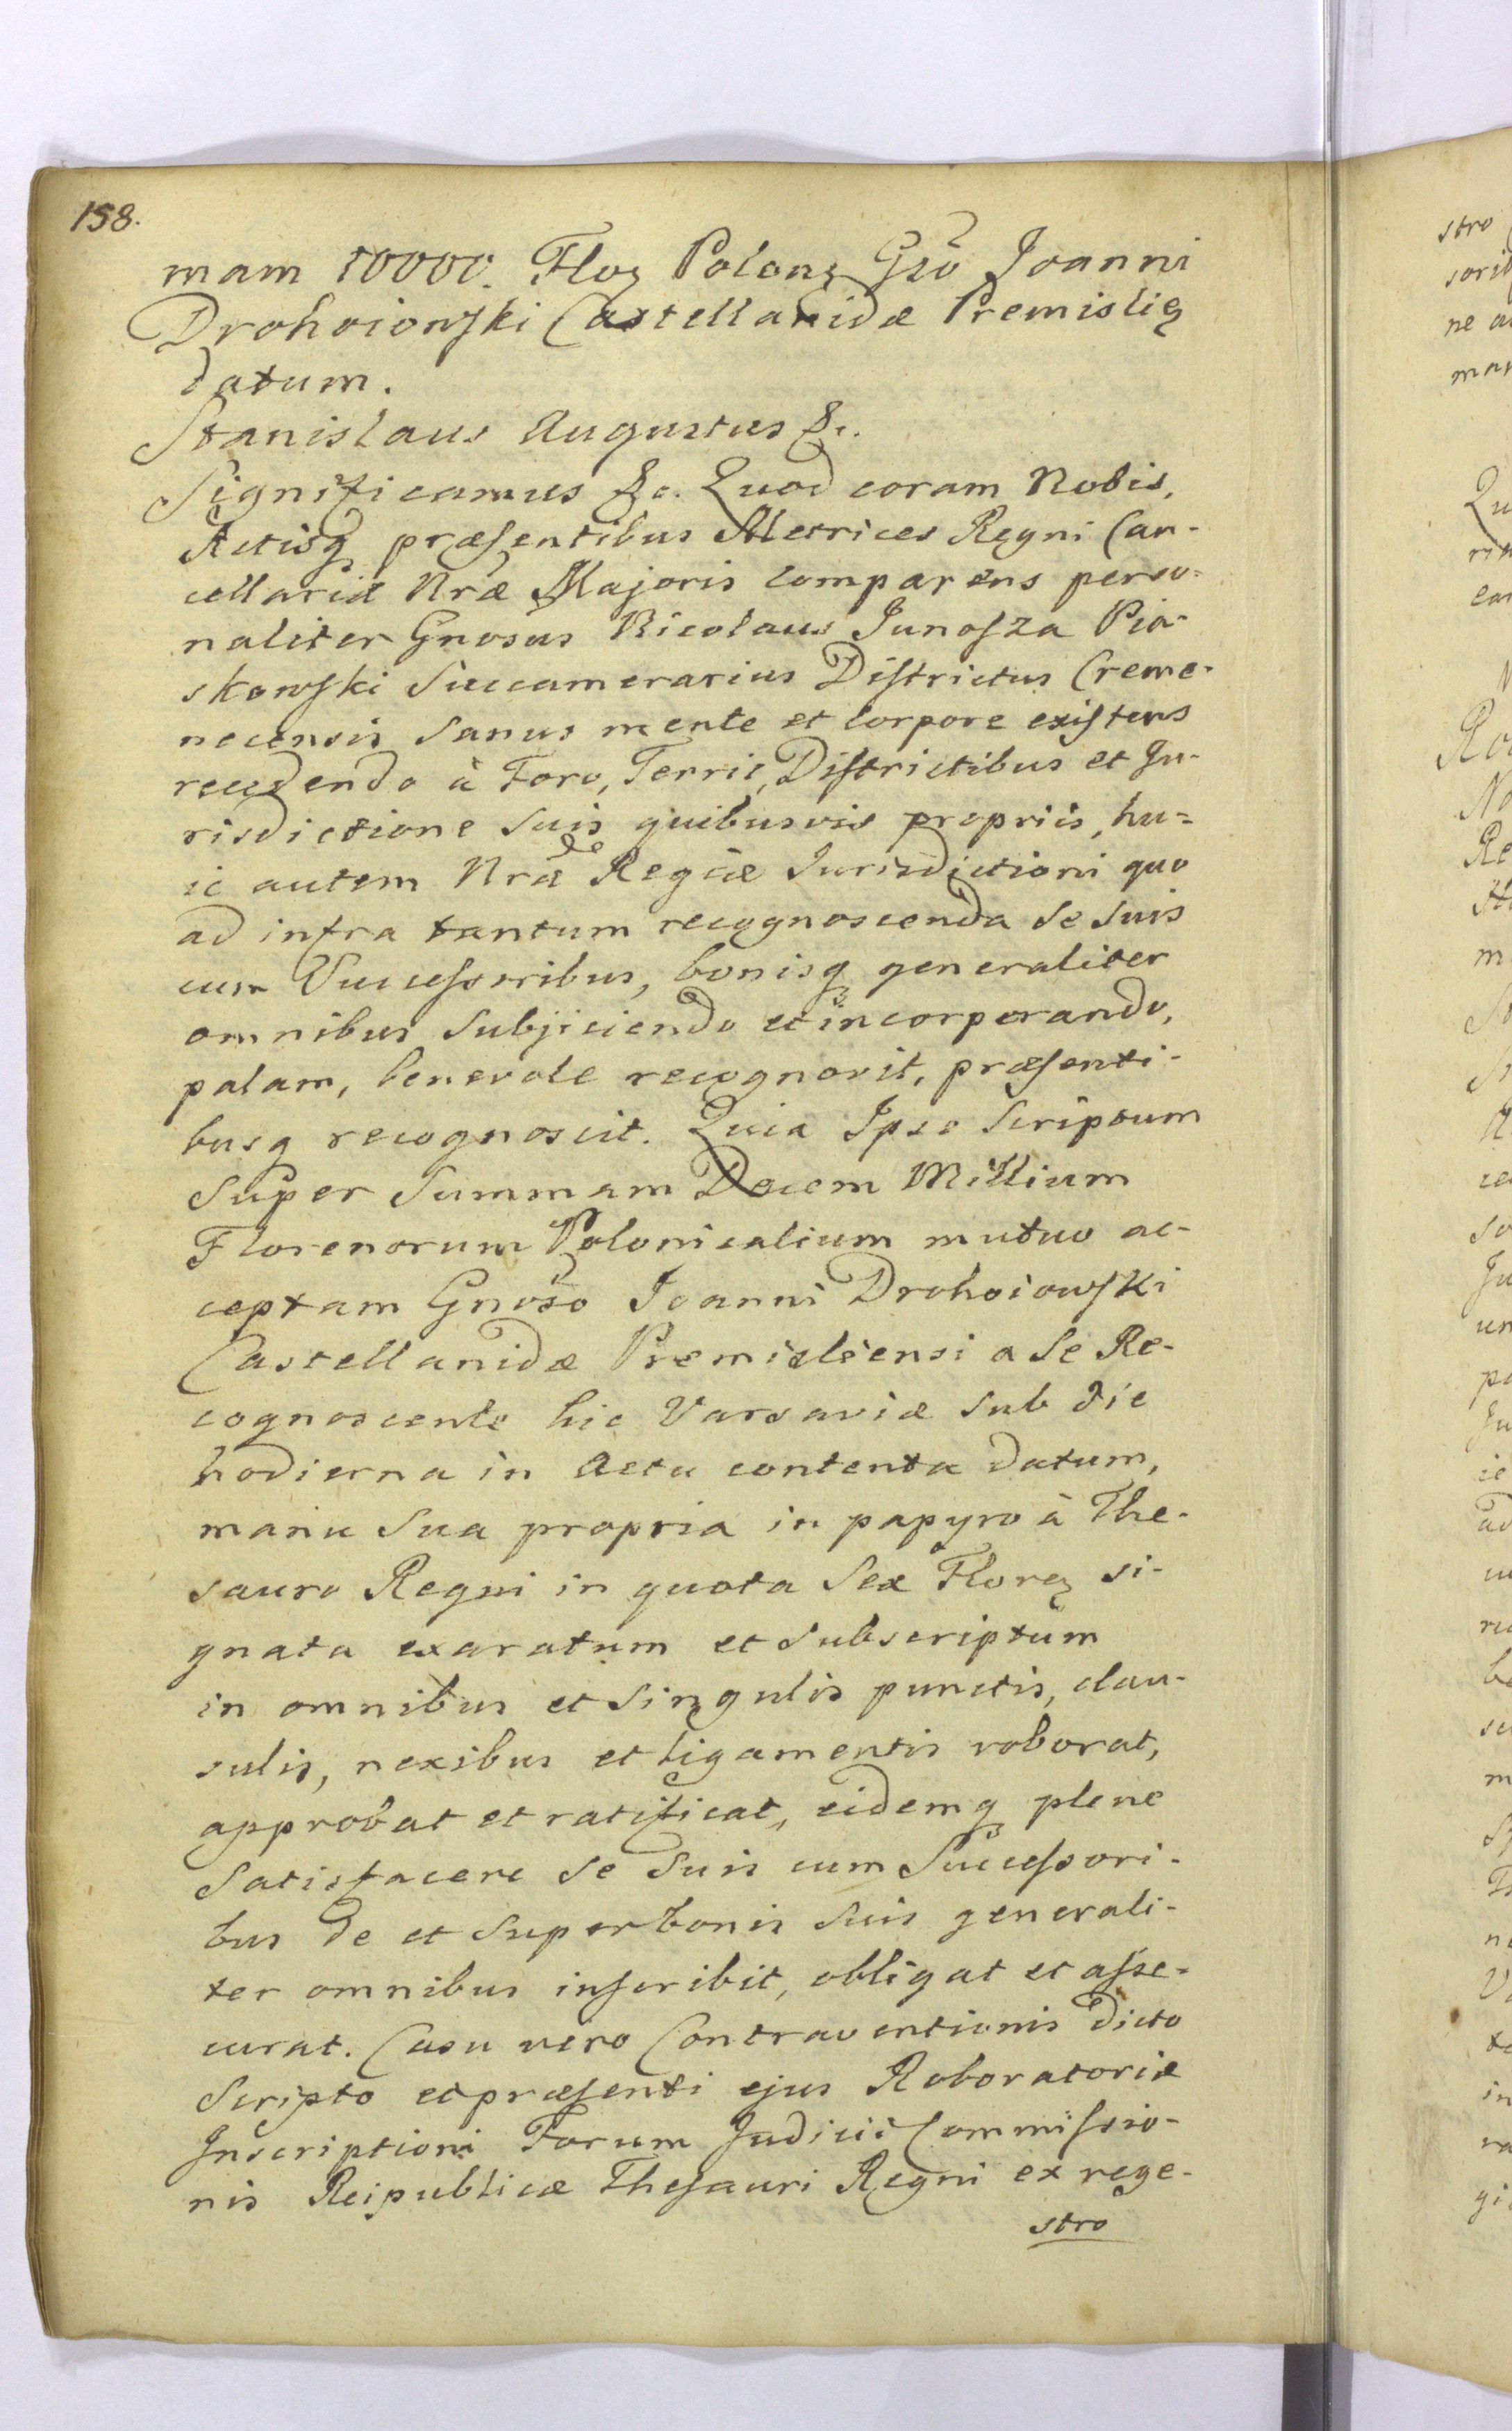 158.
mam 10000. Floꝝ Polonꝝ Gso Joanni
Drohoiowſki Castellanidæ Premisliꝝ
datum.
Stanislaus Augustus &c.
Significamus &c. Quod coram Nobis,
Actisqꝫ præſentibus Metrices Regni Can-
cellariæ Nræ Majoris comparens perso-
naliter Gnosus Nicolaus Junoſza Pia-
skowſki Succamerarius Diſtrictus Creme-
necensis sanus mente et corpore exiſtens
recedendo à Foro, Terris, Diſtrictibus et Ju-
risdictione suis quibusvis propriis, hu-
ic autem Nræ Regiæ Jurisdictioni quo
ad infra tantum recognoscenda se suis
cum Succeſsoribus, bonisqꝫ generaliter
omnibus subjiciendo et incorporando,
palam, benevole recognovit, præſenti-
busq recognoscit. Quia Ipse Scriptum
super Summam Decem Millium
Florenorum Polonicalium mutuo ac-
ceptam Gnoso Joanni Drohoiowſki
Castellanidæ Premisliensi a se Re-
cognoscente hic Varsaviæ sub die
hodierna in Actu contenta datum,
manu sua propria in papyro à The-
sauro Regni in quota sex Floreꝝ si-
gnata exaratum et subscriptum
in omnibus et singulis punctis, clau-
sulis, nexibus et ligamentis roborat,
approbat et ratificat, eidemqꝫ plene
satisfacere se suis cum Succeſsori-
bus de et super bonis suis generali-
ter omnibus inſcribit, obligat et aſse-
curat. Casu vero Contraventionis dicto
Scripto et præſenti ejus Roboratoriæ
Inscriptioni Forum Judicii Commiſsio-
nis Reipublicæ Theſauri Regni ex rege-
stro